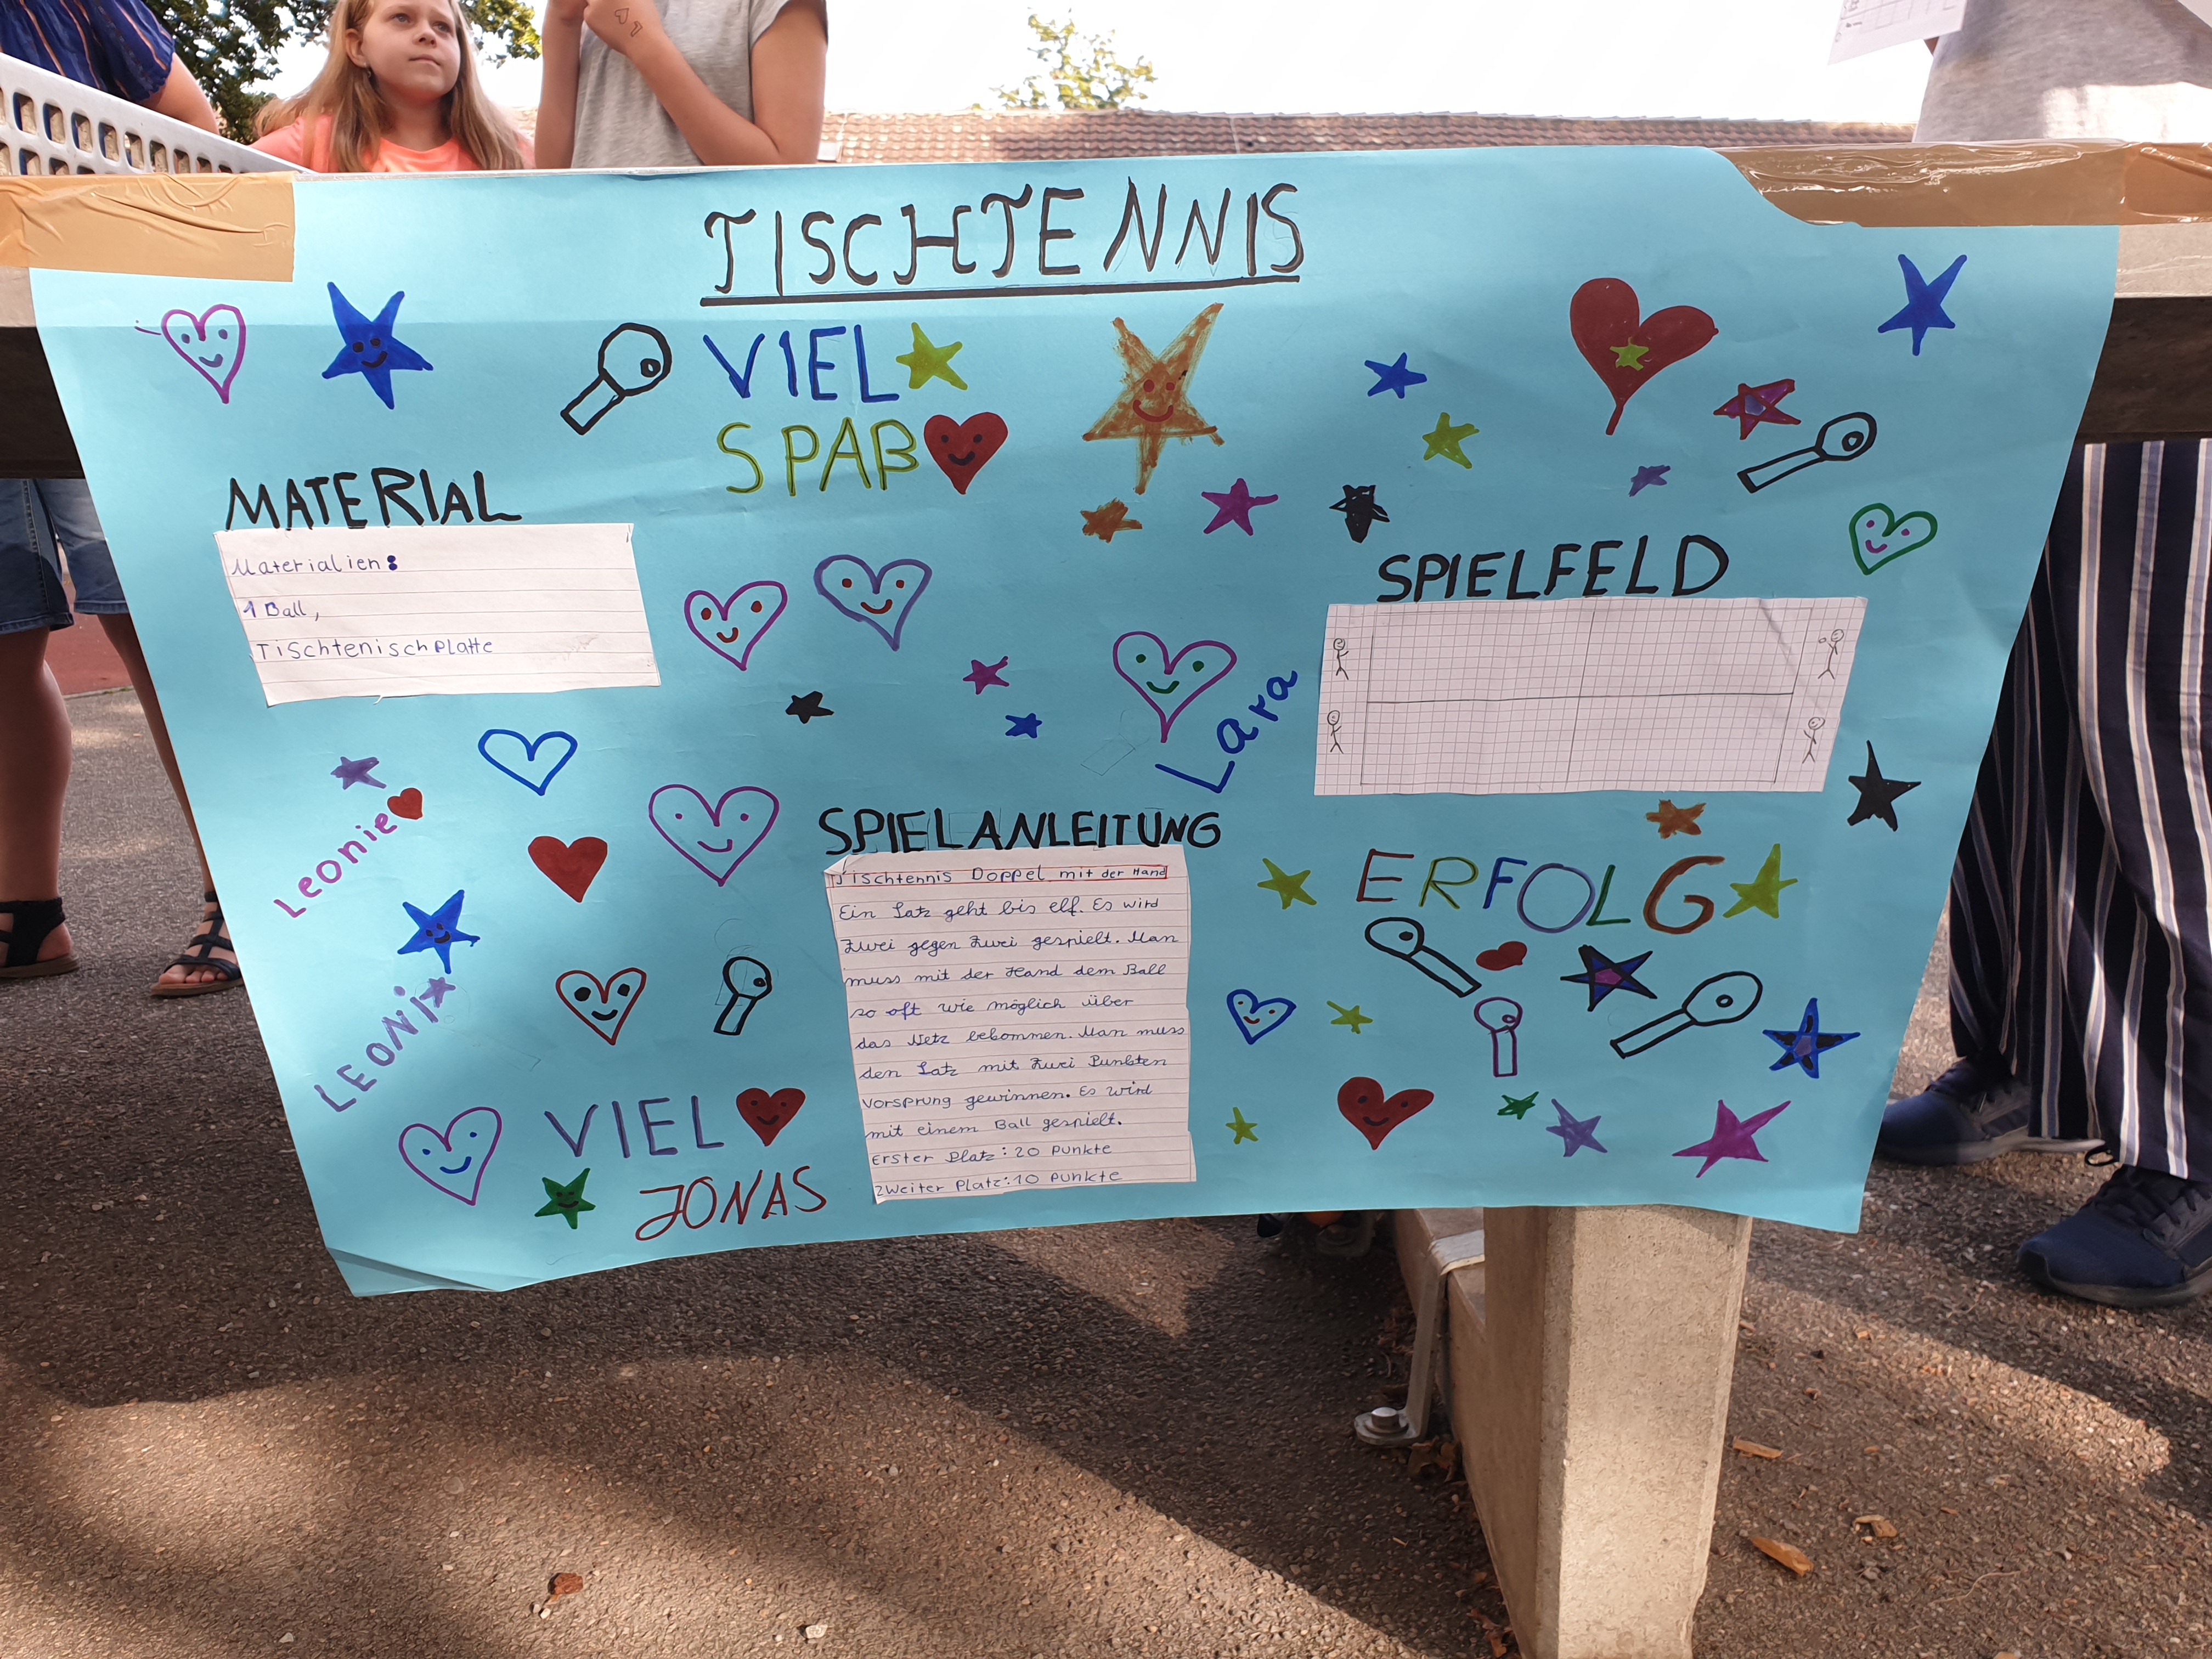 TISCHTENNIS
VIEL
SPAß
MATERIAL
Materialien:
1 Ball,
Tischtenischplatte
SPIELFELD
Lara
Leonie
LEONI
SPIELANLEITUNG
Tischtennis Doppel mit der Hand
Ein Satz geht bis elf. Es wird
zwei gegen zwei gespielt. Man
muss mit der Hand dem Ball
so oft wie möglich über
das Netz bekommen. Man muss
den Satz mit zwei Punkten
Vorsprung gewinnen. Es wird
mit einem Ball gespielt.
Erster Platz: 20 Punkte
Zweiter Platz: 10 Punkte
ERFOLG
VIEL
JONAS